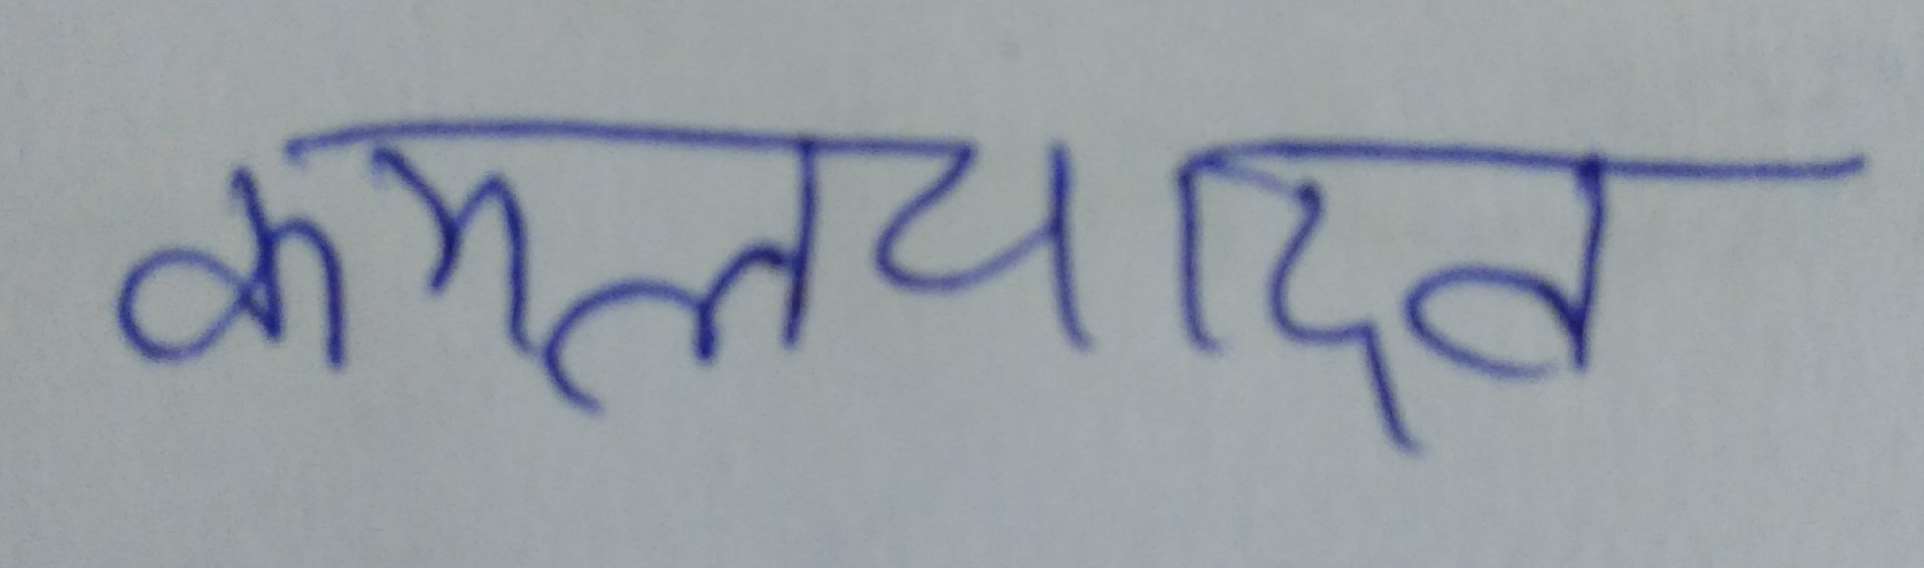 कमलयादव